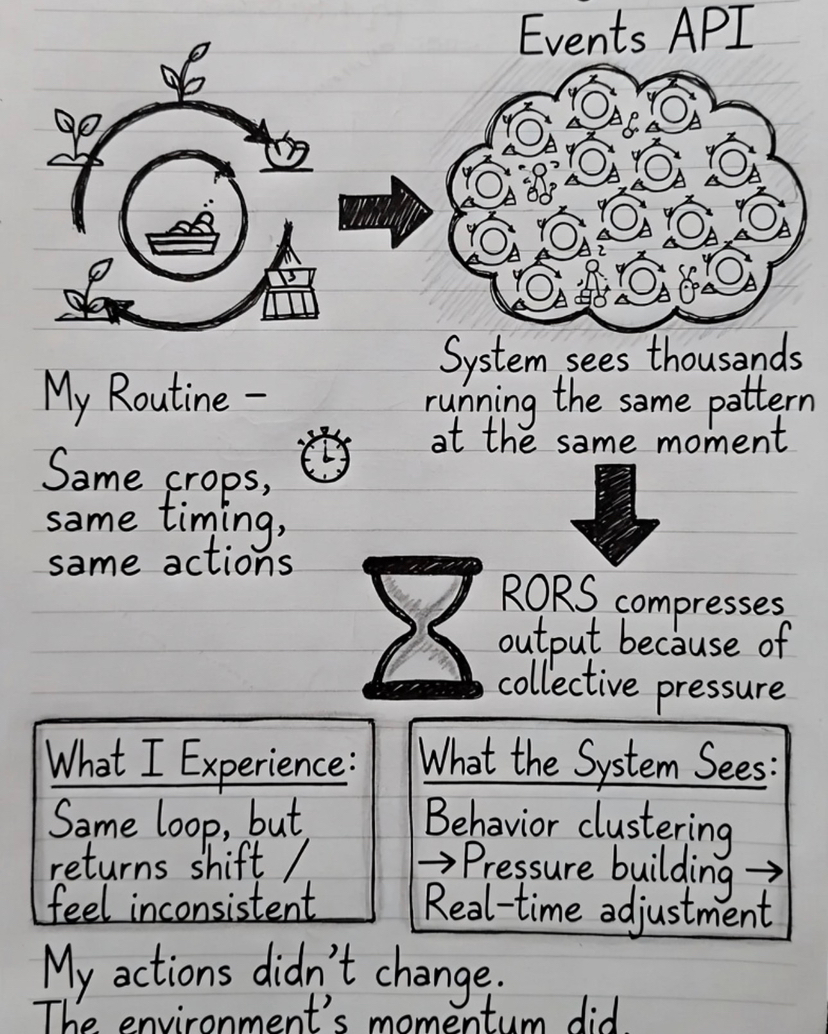 Events API
System sees thousands
running the same pattern
at the same moment
My Routine –
Same crops,
same timing,
same actions
RORS compresses
output because of
collective pressure
What I Experience:
Same loop, but
returns shift /
feel inconsistent
What the System Sees:
Behavior clustering
→Pressure building →
Real-time adjustment
My actions didn't change.
The environment's momentum did.